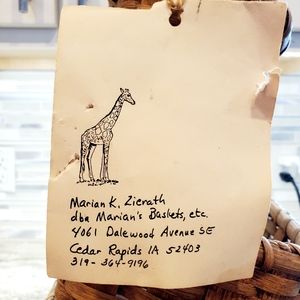 Marian K. Zierath
dba Marian's Baskets, etc.
4061 Dalewood Avenue SE
Cedar Rapids IA 52403
319-364-9196